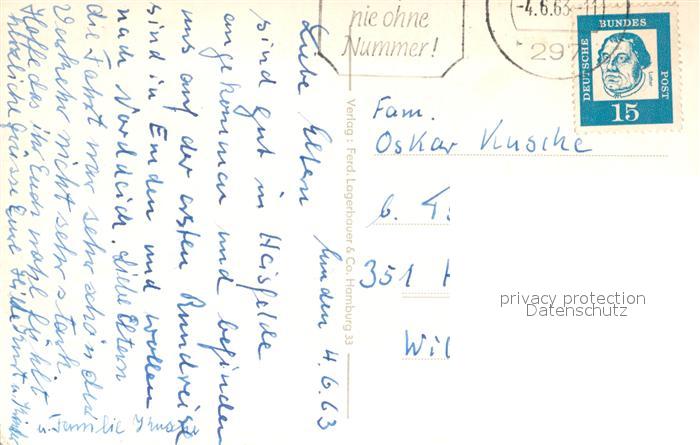 nie ohne
Nummer!
-4.6.63-11
297
DEUTSCHE
BUNDES
POST
Luther
15
Emden 4.6.63
Liebe Eltern
sind gut in Heisfelde
angekommen und befinden
uns auf der ersten Rundreise
sind in Emden und wollen
nach Norddeich. Liebe Eltern
die Fahrt war sehr schön der
Verkehr nicht sehr stark.
Hoffe das ihr Euch wohl fühlt
Herzliche Grüsse Eure
u. Familie
Verlag: Ferd. Lagerbauer & Co. Hamburg 33
Fam.
Oskar Kusche
b.
351
Wil
privacy protection
Datenschutz